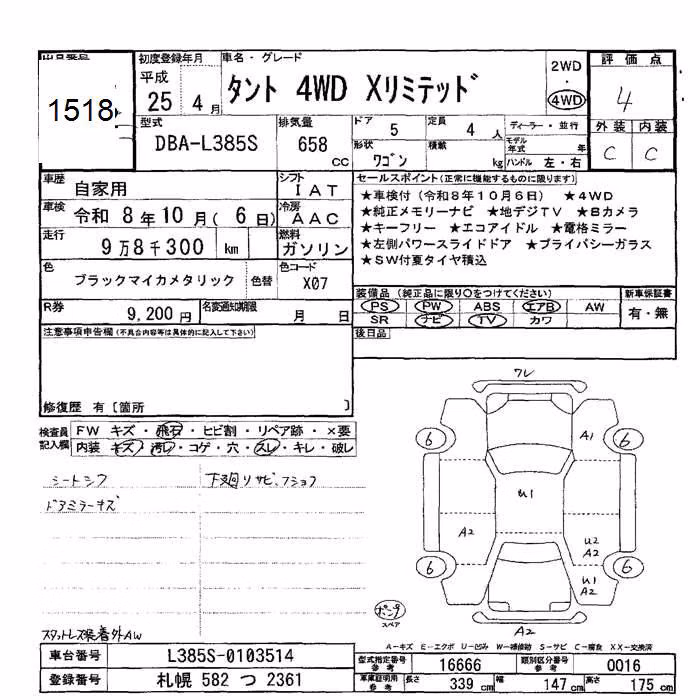 1518
初度登録年月 車名・グレード 2WD 評価点
平成 25 4月 タント 4WD Xリミテッド ・ 4WD 4
型式 排気量 ドア 定員 ディーラー・並行 外装 内装
DBA-L385S 658 cc 5 4 人 C C
形状 ワゴン 積載 kg モデル年式 年 ハンドル 左・右
車歴 自家用 シフト IAT
セールスポイント(正常に機能するものに限ります)
車検 令和 8年10月(6日) 冷房 AAC
★車検付(令和8年10月6日) ★4WD
★純正メモリーナビ ★地デジTV ★Bカメラ
走行 9万8千300 km 燃料 ガソリン
★キーフリー ★エコアイドル ★電格ミラー
★左側パワースライドドア ★プライバシーガラス
★SW付夏タイヤ積込
色 ブラックマイカメタリック 色替 色コード X07
装備品(純正品に限り○をつけてください) 新車保証書
R券 9,200円 名変通知期限 月 日
PS PW ABS エアB AW 有・無
SR ナビ TV カワ
注意事項申告欄(不具合内容等は具体的に記入して下さい) 後日品
修復歴 有〔箇所 〕
検査員記入欄 FW キズ・飛石・ヒビ割・リペア跡・×要
内装 キズ・汚レ・コゲ・穴・スレ・キレ・破レ
シートシワ 下廻リサビ、フショク
ドアミラーキズ
スタットレス装着外AW
ワレ
6 A1 6
U1
A2 U2 A2
6 6
U1 A2
ポンプ
スペア
A2
A-キズ E-エクボ U-凹み W-補修跡 S-サビ C-腐食 XX-交換済
車台番号 L385S-0103514 型式指定番号 参考 16666 類別区分番号 参考 0016
登録番号 札幌 582 つ 2361 車庫証明用 参考 長さ 339 cm 幅 147 cm 高さ 175 cm